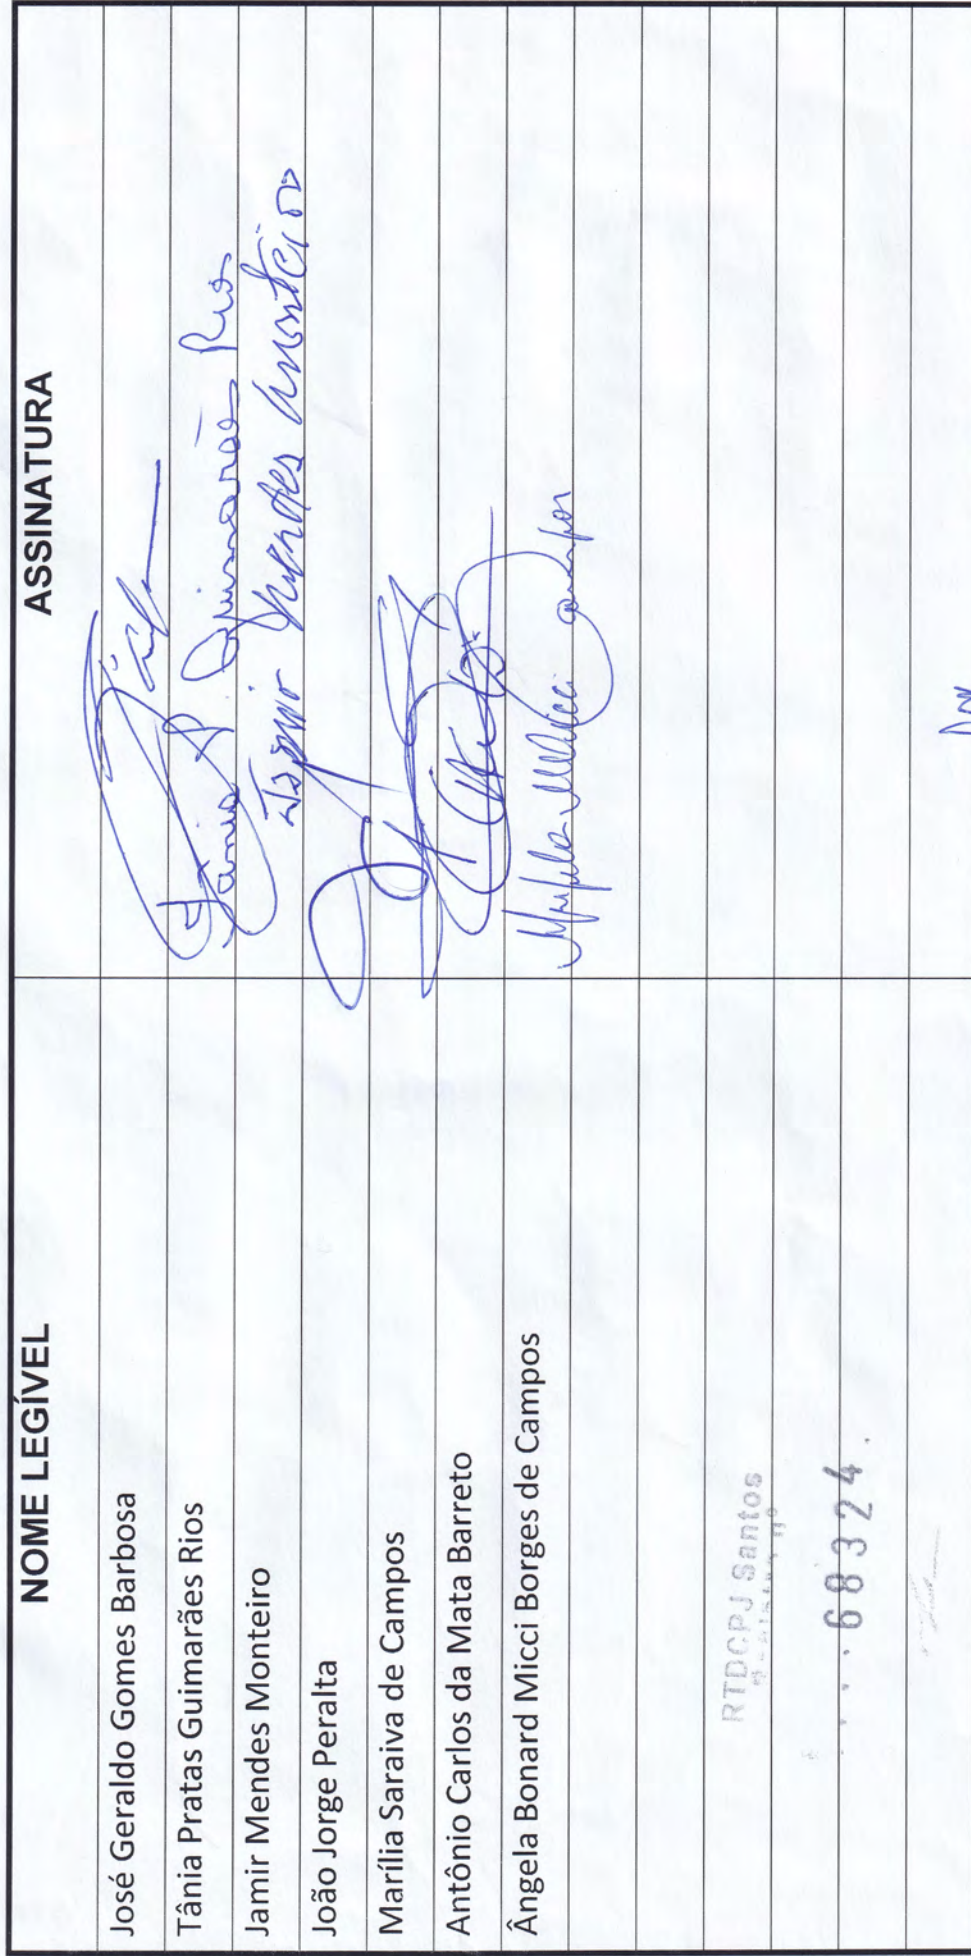 NOME LEGÍVEL ASSINATURA
José Geraldo Gomes Barbosa
Tânia Pratas Guimarães Rios Tânia P Guimarães Rios
Jamir Mendes Monteiro Jamir Mendes Monteiro
João Jorge Peralta
Marília Saraiva de Campos
Antônio Carlos da Mata Barreto
Ângela Bonard Micci Borges de Campos Micci Campos
RTDCPJ Santos
68324